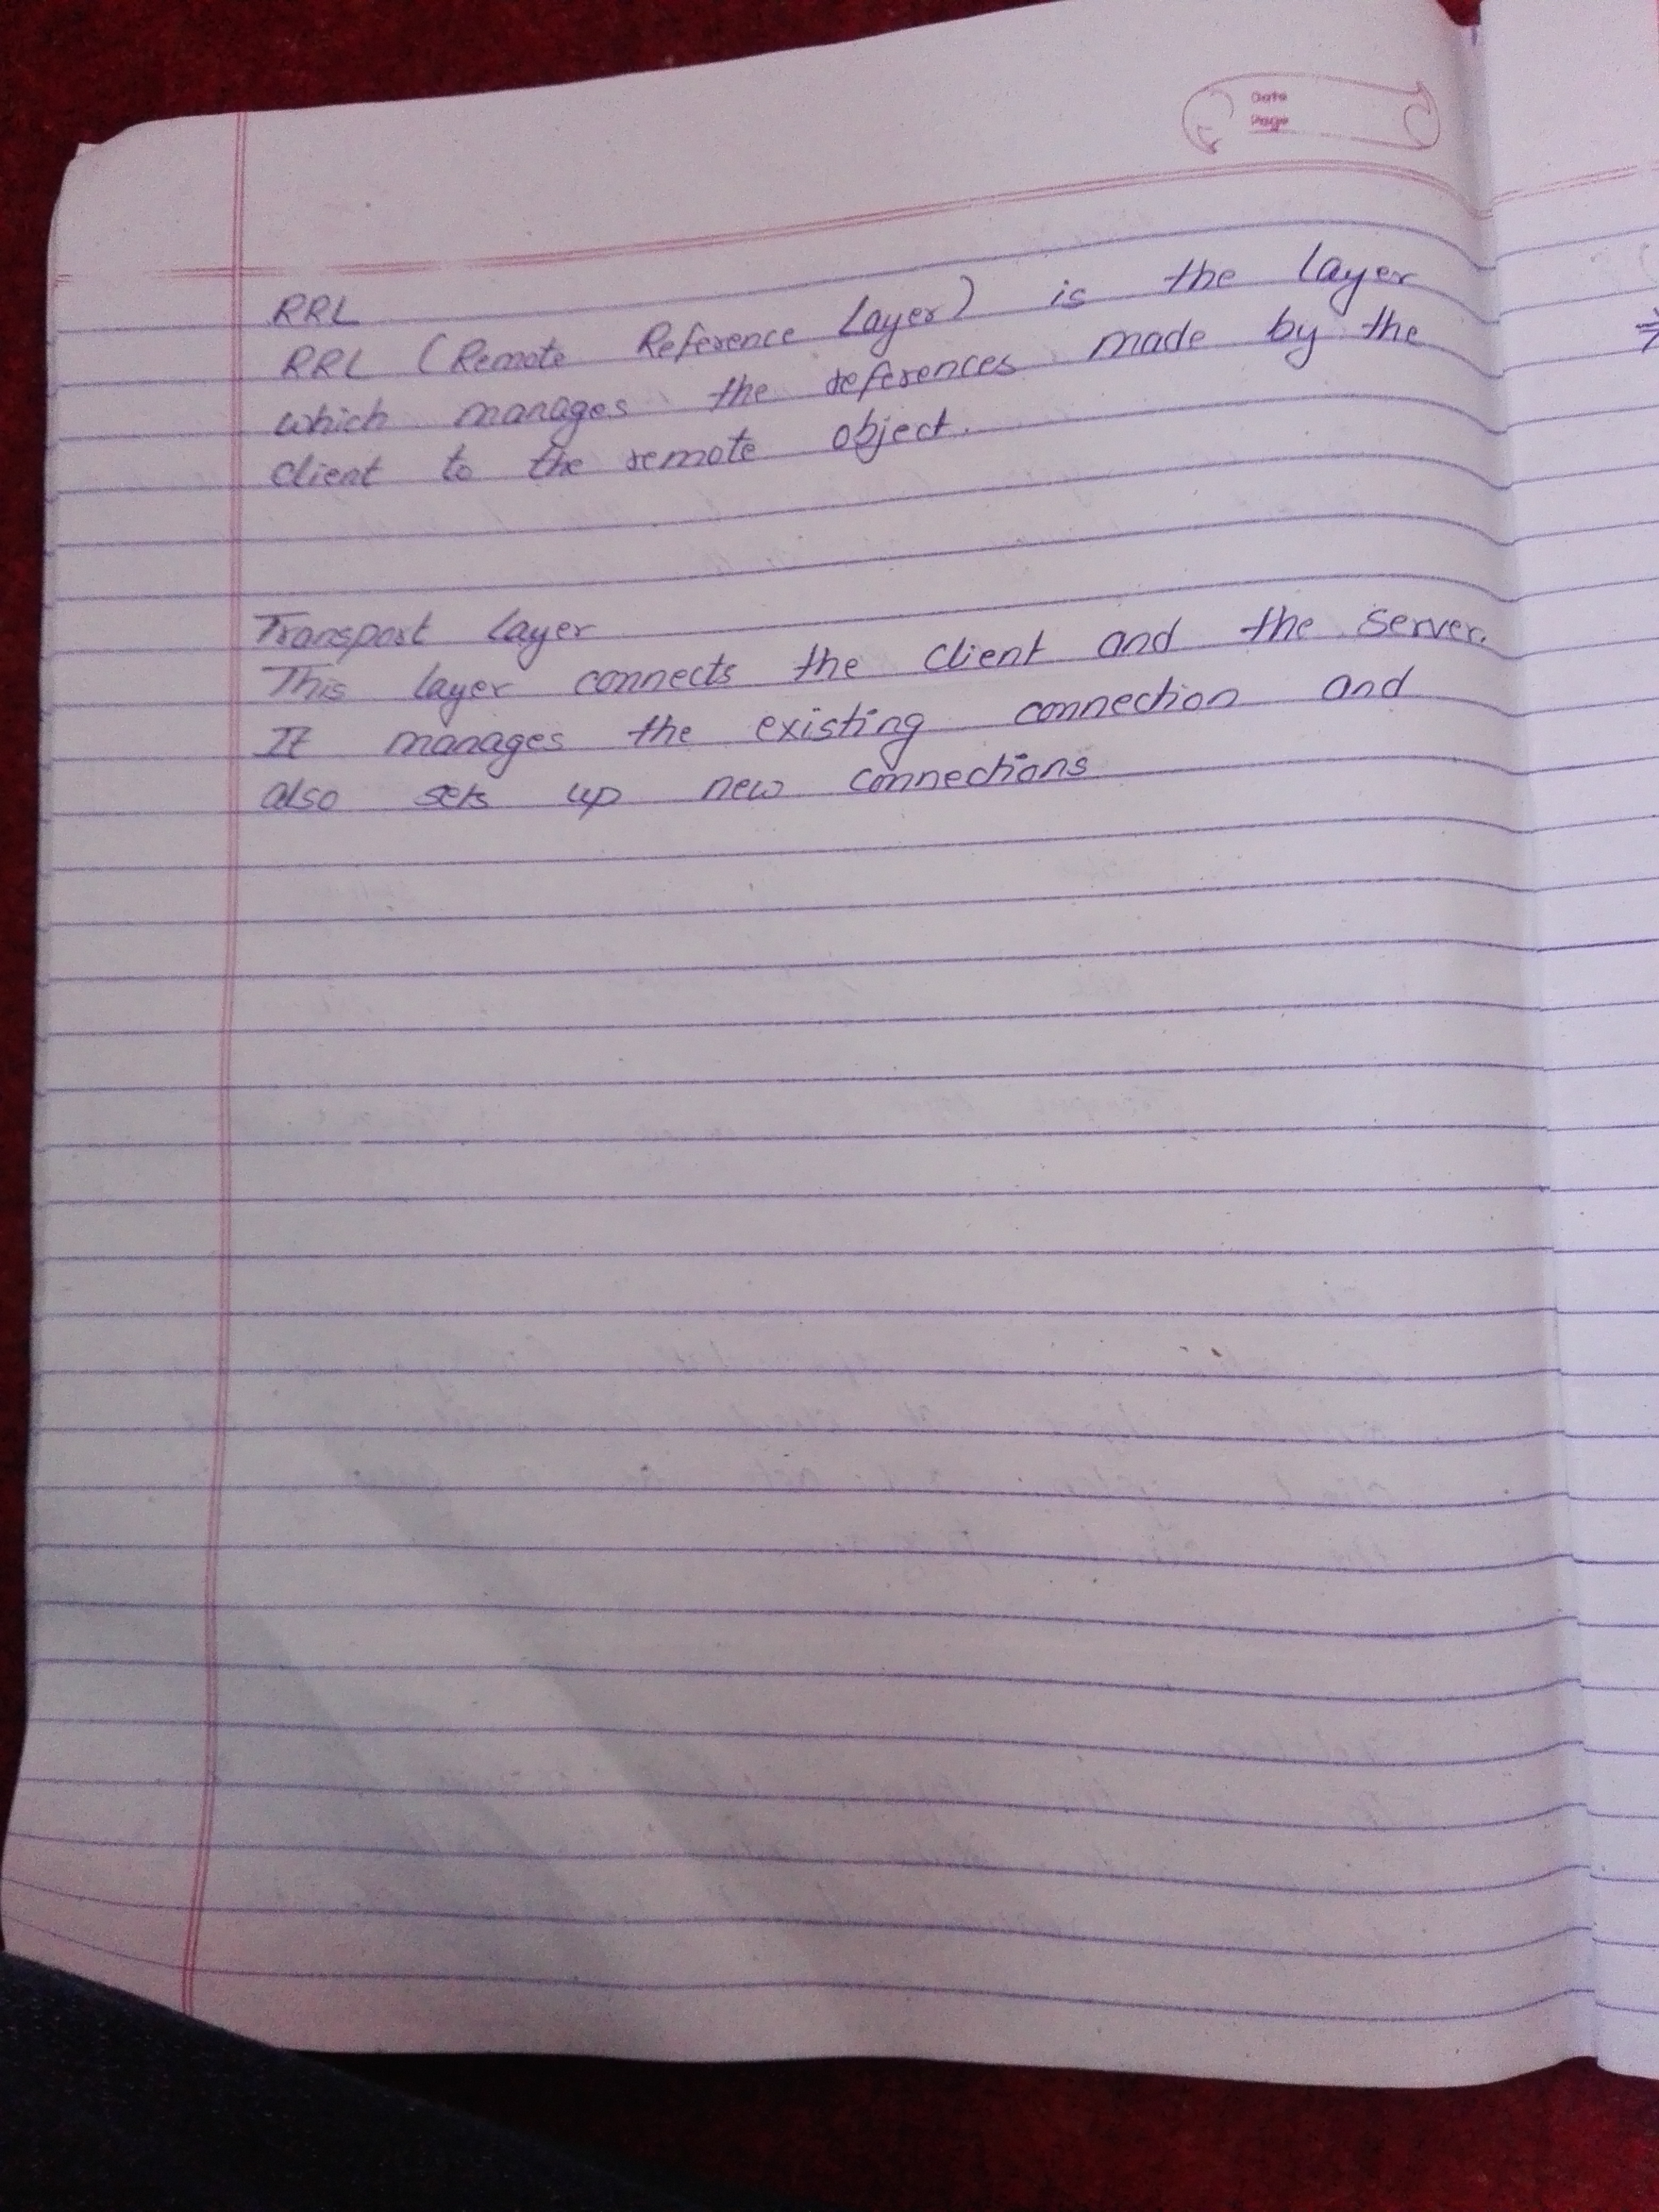 Date
Page
RRL
RRL (Remote Reference Layer) is the layer
which manages the references made by the
client to the remote object.
Transport Layer
This layer connects the client and the server.
It manages the existing connection and
also sets up new connections